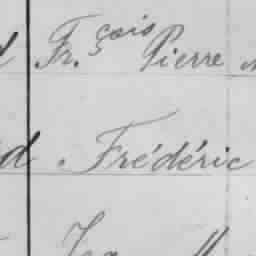 Fr.çois Pierre
d Frédéric